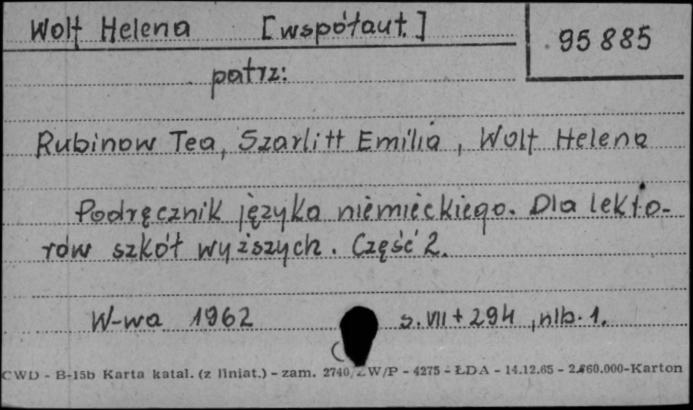 Wolf Helena [współaut.] 95 885
patrz:
Rubinow Tea, Szarlitt Emilia, Wolf Helena
Podręcznik języka niemieckiego. Dla lekto-
rów szkół wyższych. Część 2.
W-wa 1962 s. VII + 294, nlb. 1.
CWD - B-15b Karta katal. (z liniat.) - zam. 2740 W/P - 4275 - ŁDA - 14.12.65 - 2.860.000-Karton